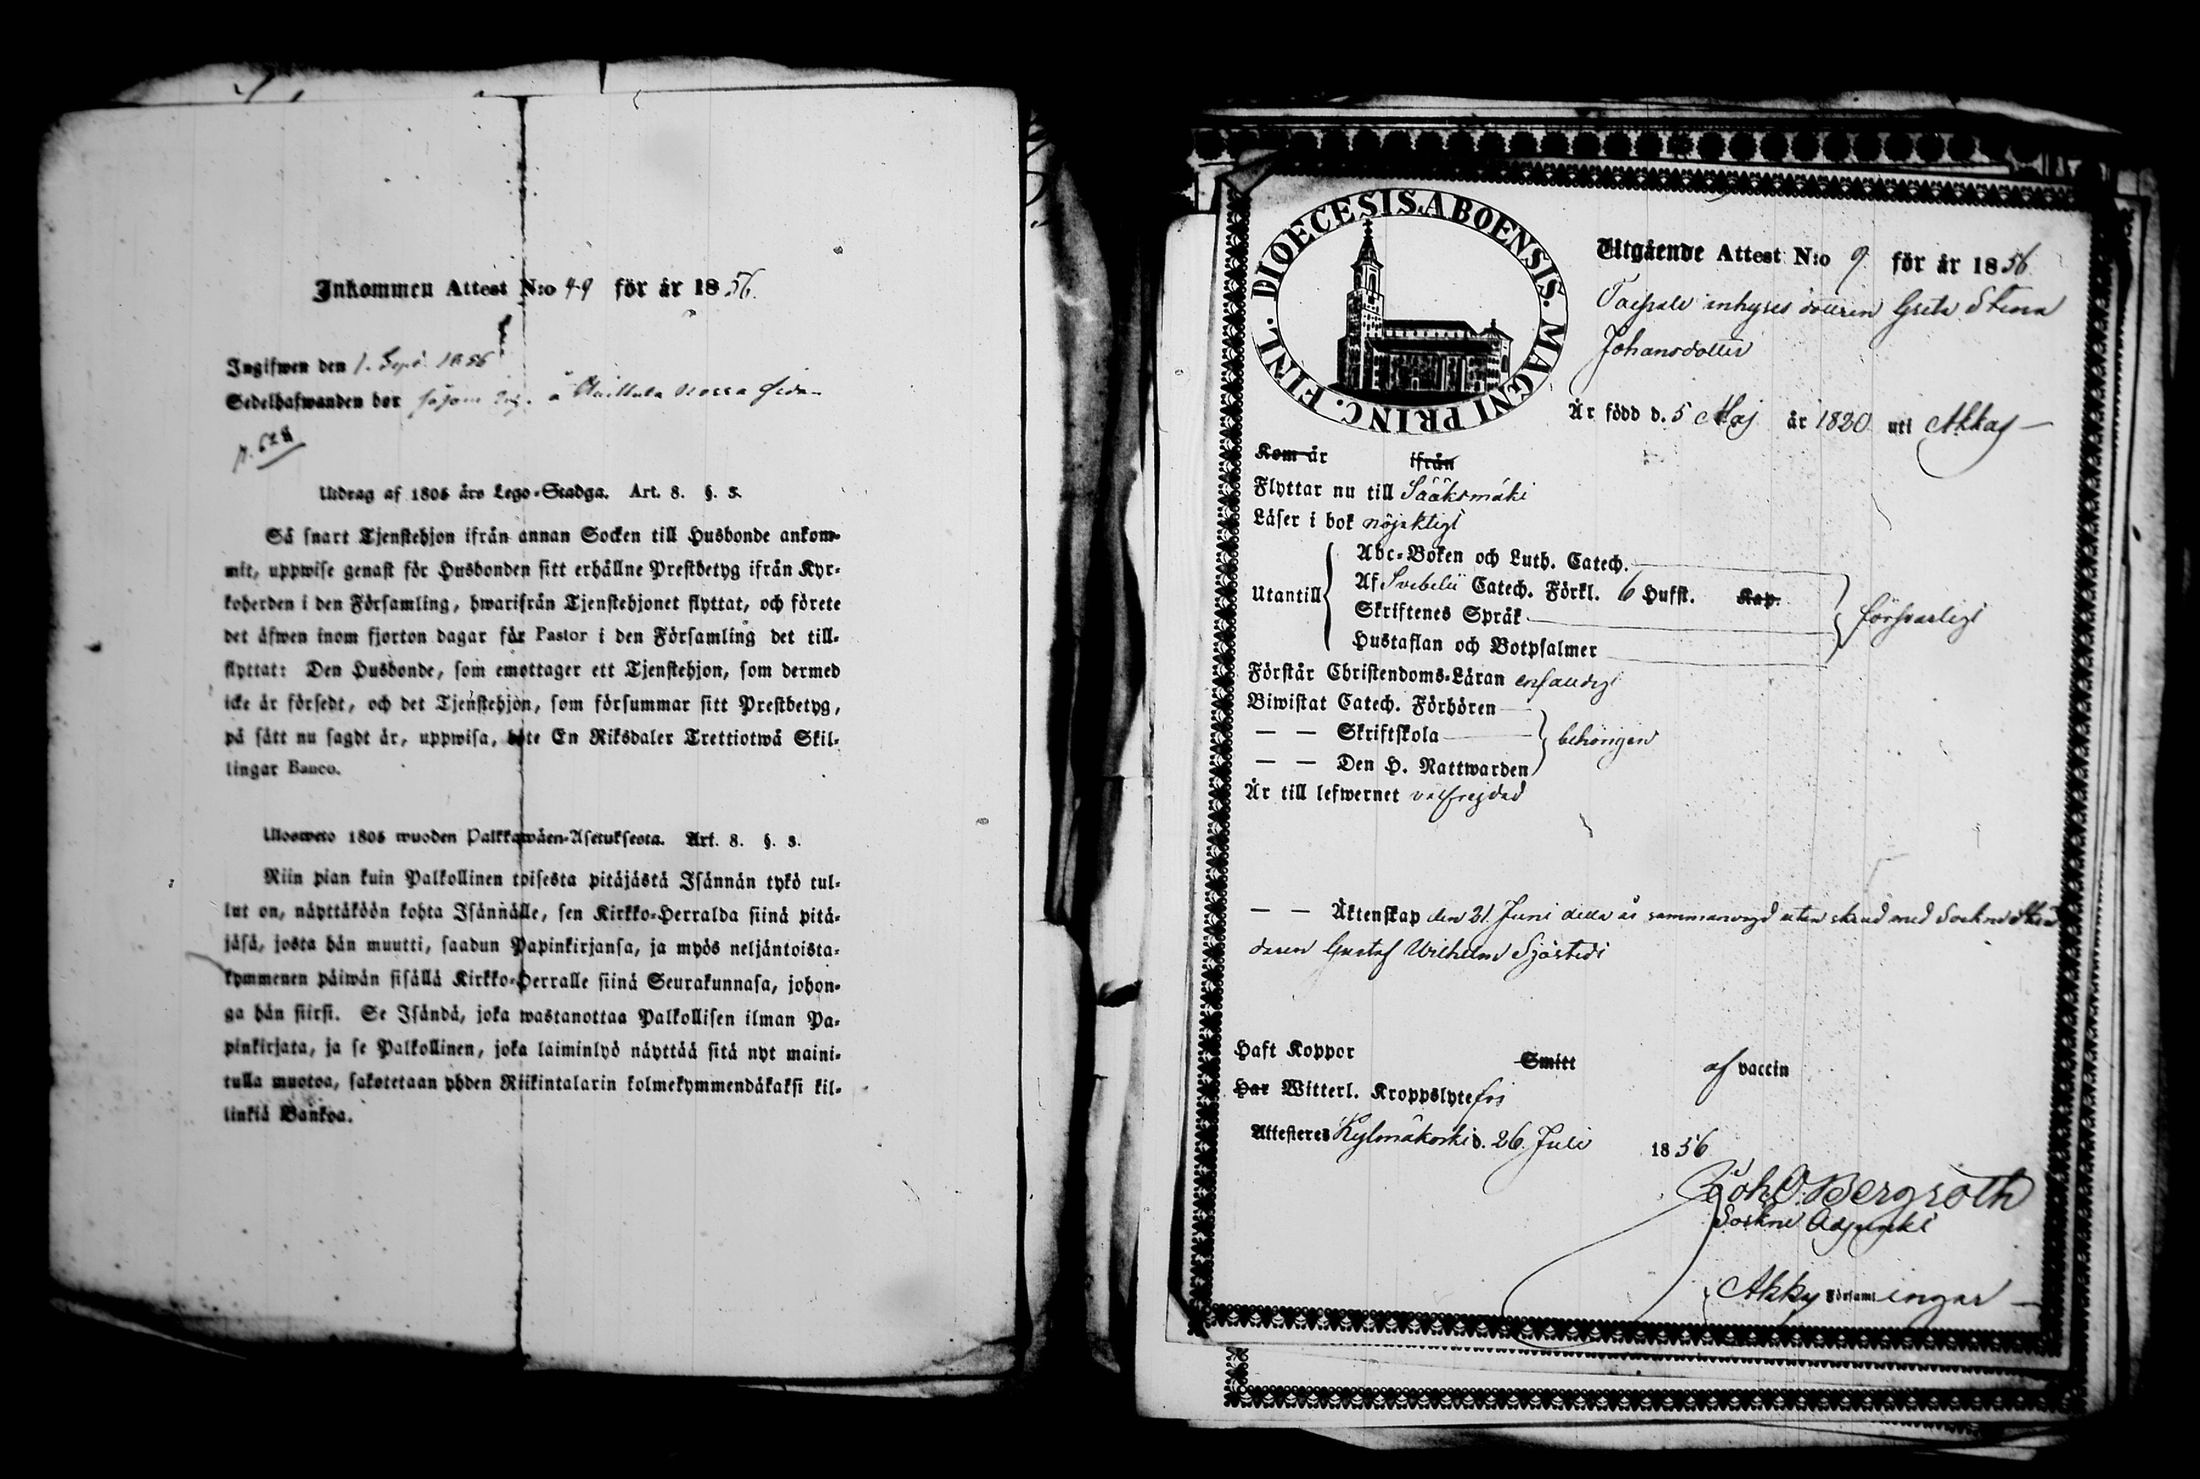 Inkommen Attest N:o 49 för år 1856.
Ingifwen den 1. Sept. 1856
Sedelhafwanden bor å norra sidan
p. 628
Utdrag af 1805 års Lego-Stadga. Art. 8. §. 3.
Så snart Tjenstehjon ifrån annan Socken till Husbonde ankom-
mit, uppwise genast för Husbonden sitt erhållne Prestbetyg ifrån Kyr-
koherden i den Församling, hwarifrån Tjenstehjonet flyttat, och förete
det äfwen inom fjorton dagar för Pastor i den Församling det till-
flyttat: Den Husbonde, som emottager ett Tjenstehjon, som dermed
icke är försedt, och det Tjenstehjon, som försummar sitt Prestbetyg,
på sätt nu sagdt är, uppwisa, böte En Riksdaler Trettiotwå Skil-
lingar Banco.
Ulosweto 1805 wuoden Palkkawäen-Asetuksesta. Art. 8. §. 3.
Niin pian kuin Palkollinen toisesta pitäjästä Isännän tykö tul-
lut on, näyttäköön kohta Isännälle, sen Kirkko-Herralda siinä pitä-
jäsä, josta hän muutti, saadun Papinkirjansa, ja myös neljäntoista-
kymmenen päiwän sisällä Kirkko-Herralle siinä Seurakunnasa, johon-
ga hän siirsi. Se Isändä, joka wastanottaa Palkollisen ilman Pa-
pinkirjata, ja se Palkollinen, joka laiminlyö näyttää sitä nyt maini-
tulla muotoa, sakotetaan yhden Riikintalarin kolmekymmendäkaksi kil-
linkiä Bankoa.
DIOECESIS. ABOENSIS. MAGNI PRINC. FINL.
Utgående Attest N:o 9 för år 1856
inhyses dottren Greta Stina
Johansdotter
Är född d. 5 Maj år 1820 uti Akkas
Kom år ifrån
Flyttar nu till Sääksmäki
Läser i bok nöjaktigt
Abc-Boken och Luth. Catech.
Utantill Af Svebelii Catech. Förkl. 6 Hufst. Kap.
Skriftenes Språk
Hustaflan och Botpsalmer
försvarligt
Förstår Christendoms-Läran enfaldigt
Biwistat Catech. Förhören
— — Skriftskola
— — Den H. Nattwarden
behörigen
Är till lefwernet välfrejdad
— — Äktenskap den 21 Juni detta år sammanvigd utan skrud med Sockne Skräd
daren Gustaf Wilhelm Sjöstedt
Haft Koppor Smitt af vaccin
Har Witterl. Kroppslyte fri
Attesteres Kylmäkoski d. 26. Juli 1856
Joh O. Bergroth
Sockne Adjunkt
Akkas Församlingar